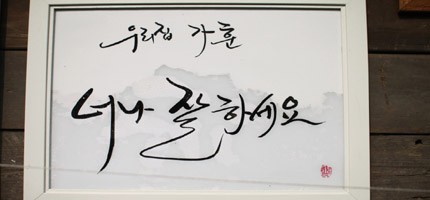 우리집 가훈
너나 잘 하세요